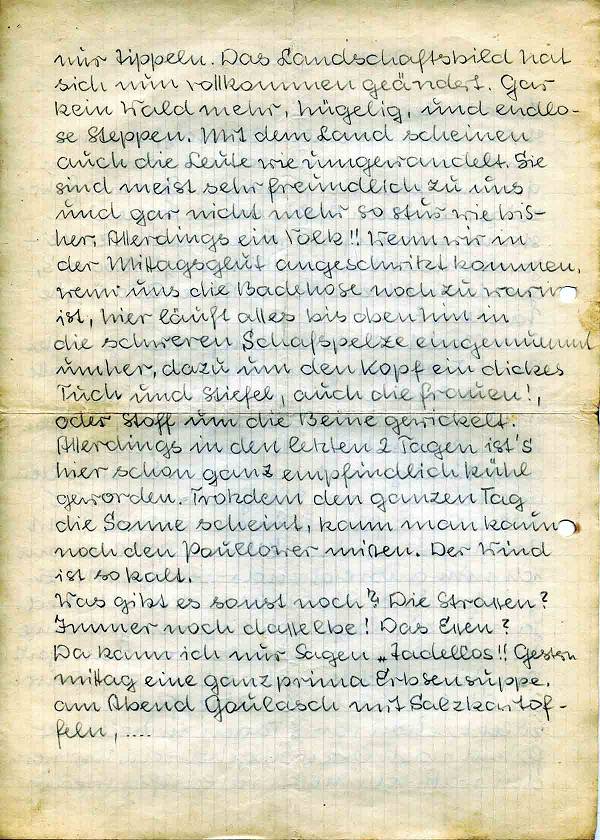 nur tippeln. Das Landschaftsbild hat
sich nun vollkommen geändert. Gar
kein Wald mehr, hügelig, und endlo-
se Steppen. Mit dem Land scheinen
auch die Leute wie umgewandelt. Sie
sind meist sehr freundlich zu uns
und gar nicht mehr so stur wie bis-
her. Allerdings ein Volk!! Wenn wir in
der Mittagsglut angeschwitzt kommen,
wenn uns die Badehose noch zu warm
ist, hier läuft alles bis oben hin in
die schweren Schafspelze eingemummt
umher, dazu um den Kopf ein dickes
Tuch und Stiefel, auch die Frauen!,
oder Stoff um die Beine gewickelt.
Allerdings in den letzten 2 Tagen ist's
hier schon ganz empfindlich kühl
geworden. Trotzdem den ganzen Tag
die Sonne scheint, kann man kaum
noch den Paullower missen. Der Wind
ist so kalt.
Was gibt es sonst noch? Die Strassen?
Immer noch dasselbe! Das Essen?
Da kann ich nur sagen „Tadellos!! Gestern
mittag eine ganz prima Erbsensuppe.
am Abend Goulasch mit Salzkartof-
feln, ....